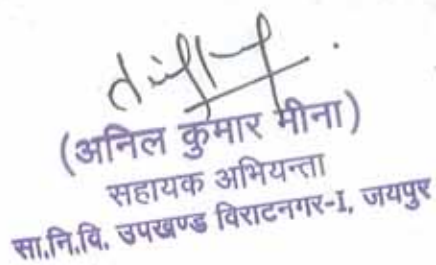 (अनिल कुमार मीना)
सहायक अभियन्ता
सा.नि.वि. उपखण्ड विराटनगर-I, जयपुर